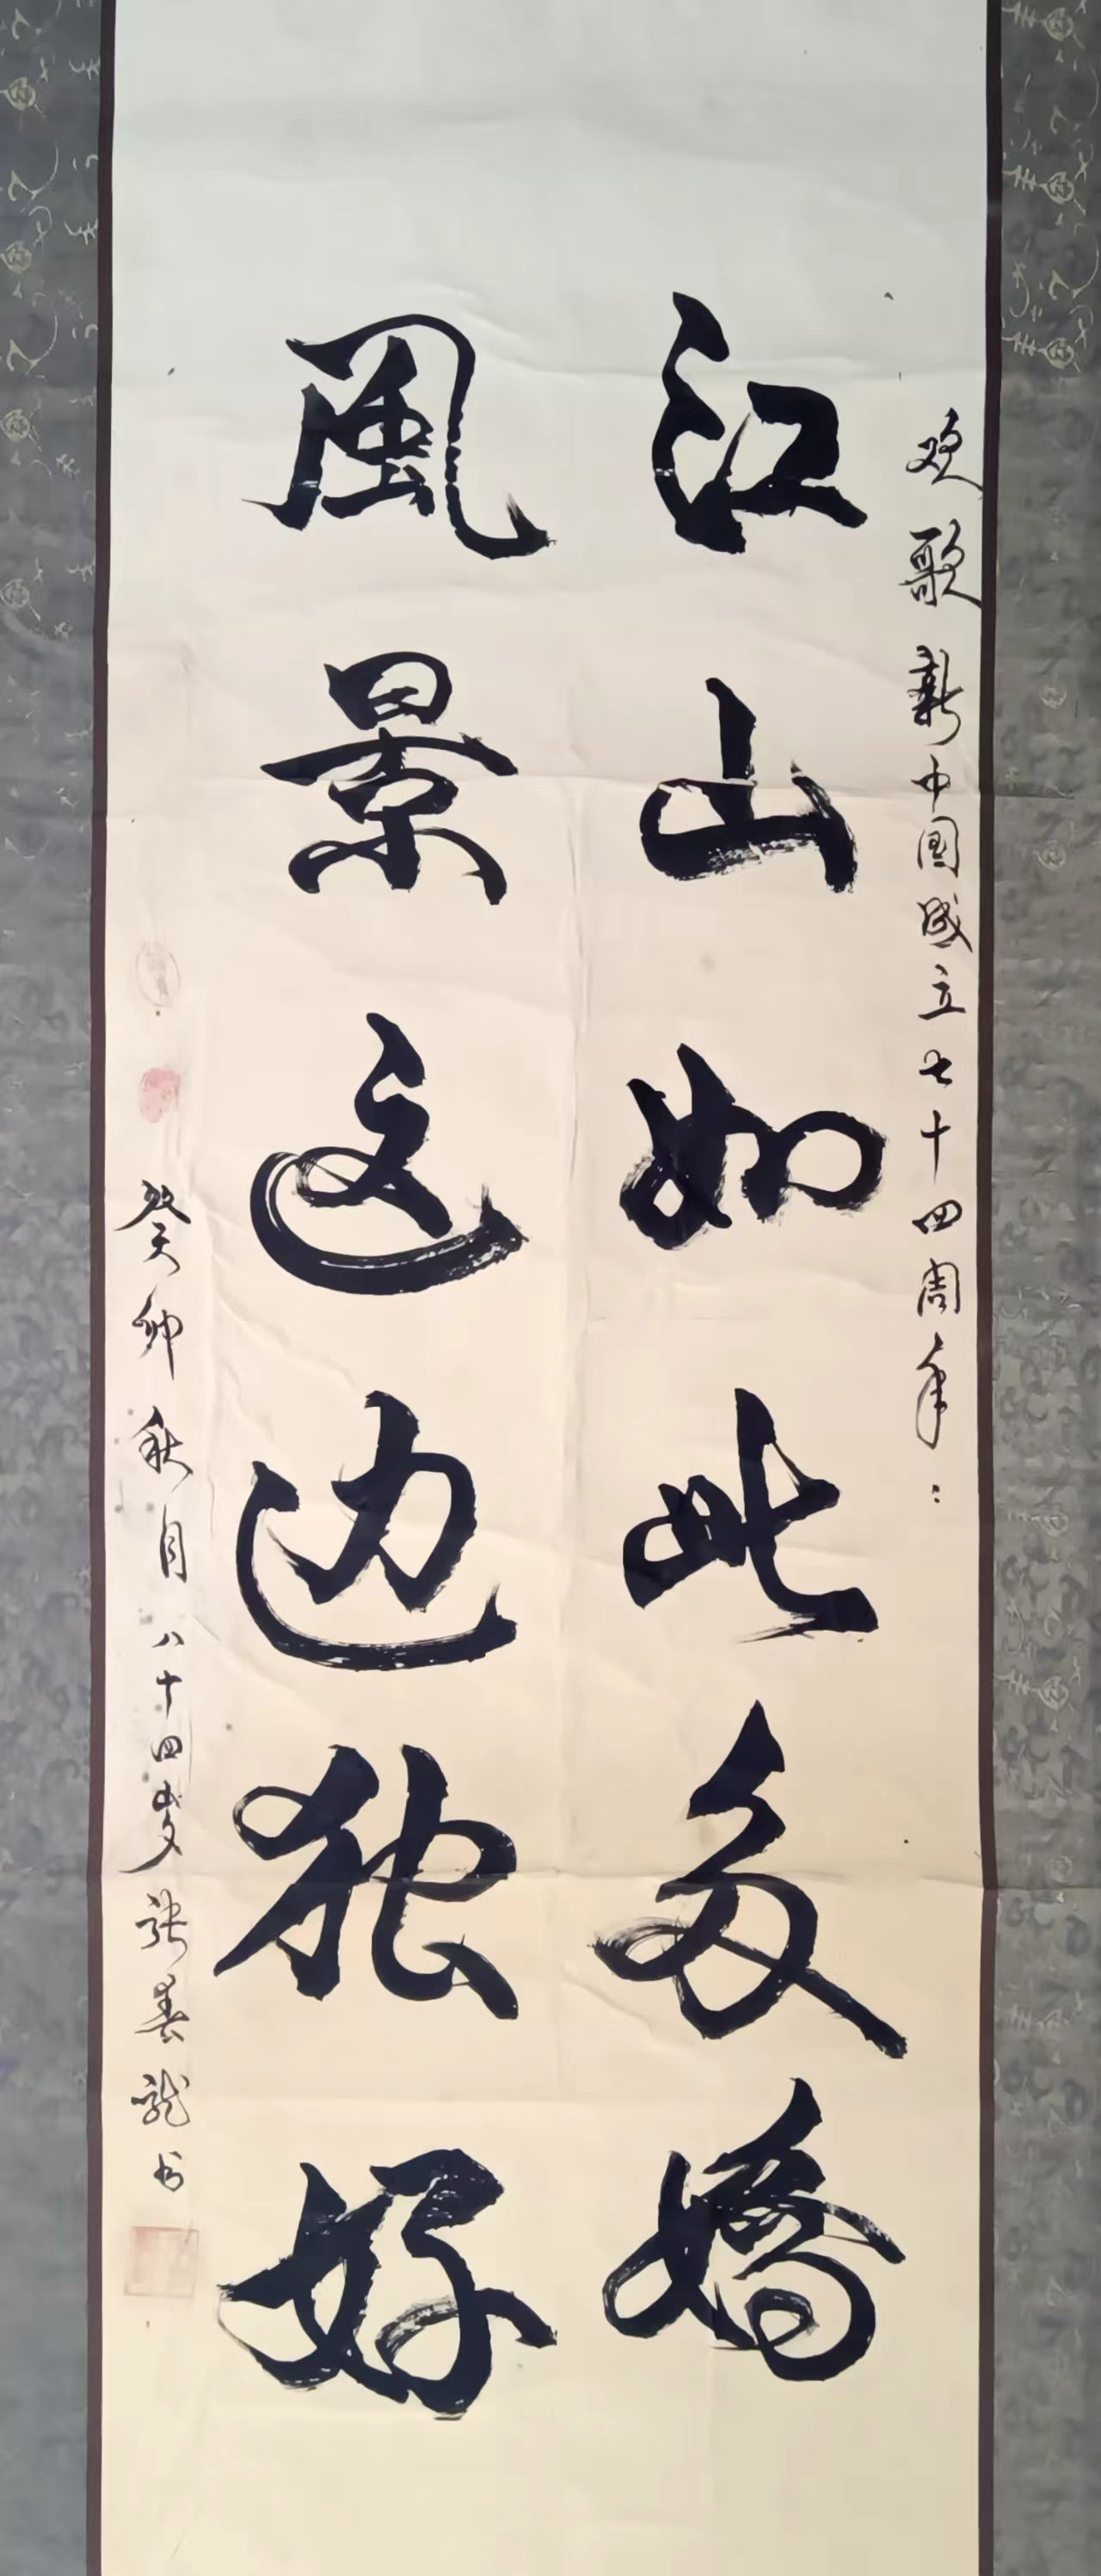 欢歌新中国成立七十四周年:
江山如此多娇
風景这边独好
癸卯秋月八十四岁张春龙书